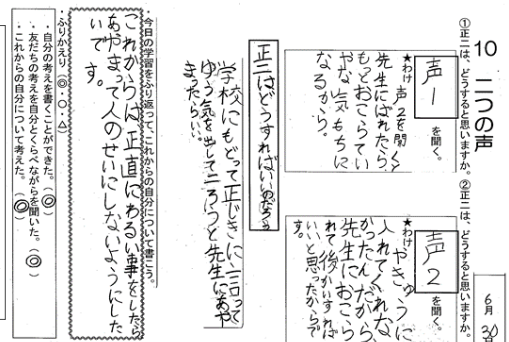 10 二つの声
①正二は、どうすると思いますか。
声1
を聞く。
★わけ 声2を聞くと
先生にばれたら、
もっとおこらてい
やな気もちに
なるから。
②正二は、どうすると思いますか。
声2
を聞く。
★わけ やきゅうに
入れてくれな
かったんだから、
先生におこら
れて後かいすれば
いいと思ったからで
す。
6月30日
正二はどうすればいいのだろう
学校にもどって正じきに言って
ゆう気を出して二ろうと先生にあや
まったらいい。
・今日の学習をふり返って、これからの自分について書こう。
これからは正直にわるい事をしたら
あやまって人のせいにしないようにした
いです。
・ふりかえり（◎・○・△）
・自分の考えを書くことができた。（◎）
・友だちの考えを自分とくらべながらを聞いた。（◎）
・これからの自分について考えた。（◎）